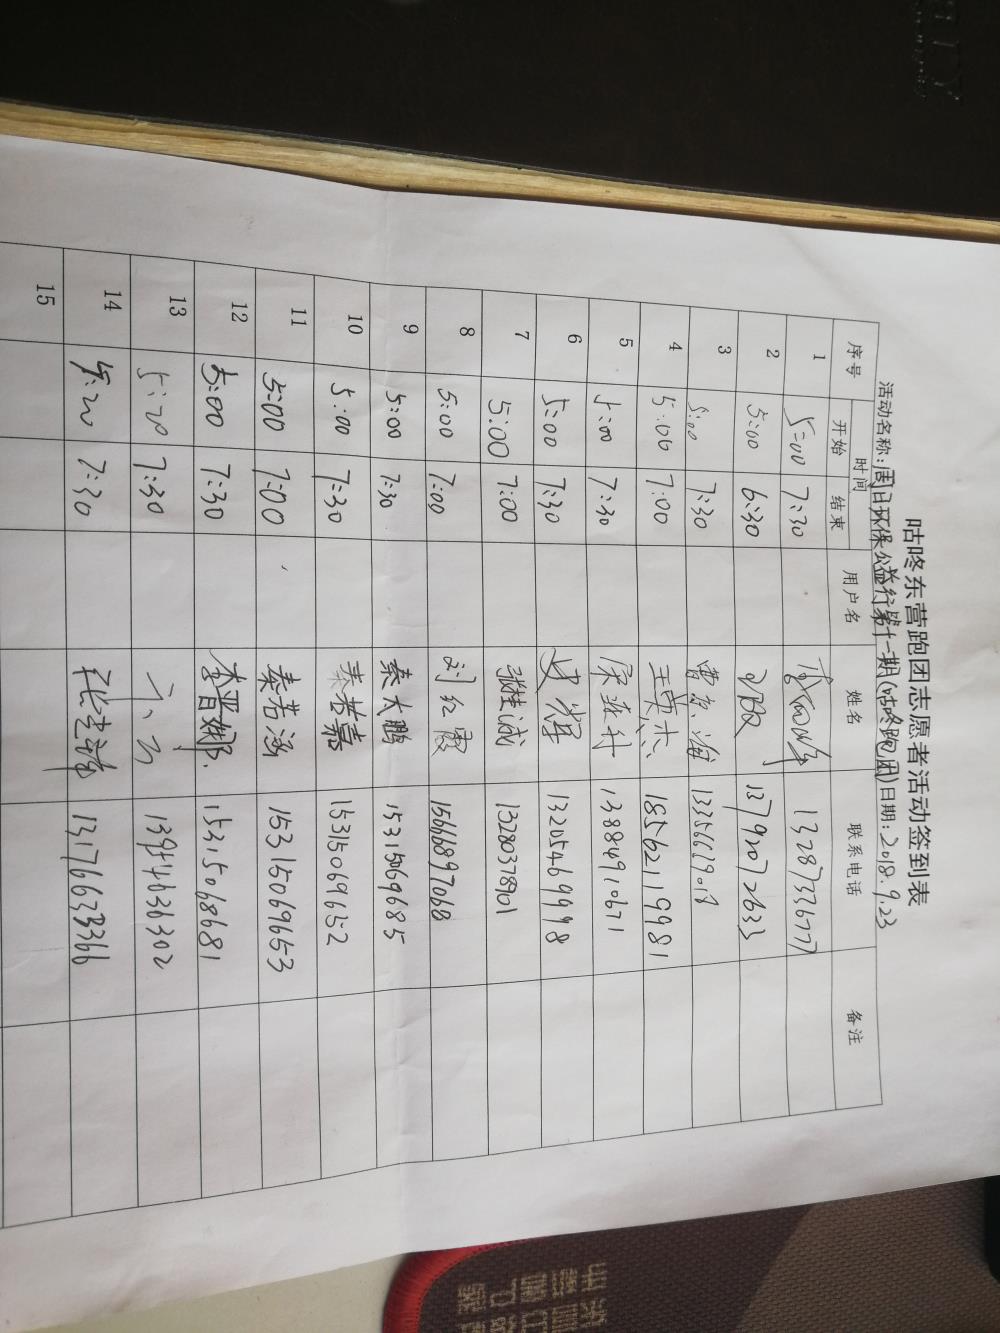 咕咚东营跑团志愿者活动签到表
活动名称：周日环保公益行第十一期(咕咚跑团)日期：2018.9.23
序号 时间 用户名 姓名 联系电话 备注
开始 结束
1 5:00 7:30 13287336777
2 5:00 6:30 13792072633
3 5:00 7:30 曹京海
4 5:00 7:00 18562119981
5 5:00 7:30 13884910671
6 5:00 7:30 13205469998
7 5:00 7:00 张桂诚 13280378901
8 5:00 7:00 刘红霞 15666897068
9 5:00 7:30 秦大鹏 15315069685
10 5:00 7:30 秦若嘉 15315069652
11 5:00 7:00 秦若涵 15315069653
12 5:00 7:30 李晋娜 15315068681
13 5:20 7:30
14 5:20 7:30 13176633366
15